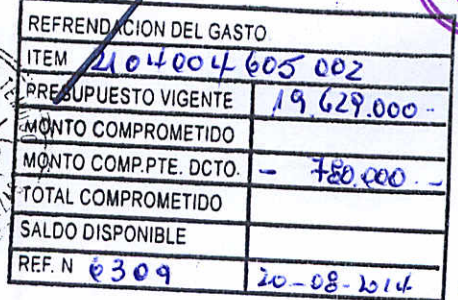 REFRENDACION DEL GASTO
ITEM 2104004605002
PRESUPUESTO VIGENTE 19.629.000.-
MONTO COMPROMETIDO
MONTO COMP.PTE. DCTO. - 780.000.-
TOTAL COMPROMETIDO
SALDO DISPONIBLE
REF. N 6309 20-08-2014